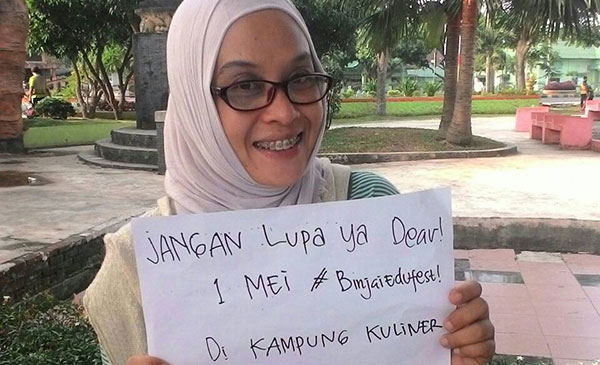 JANGAN Lupa ya Dear!
1 MEI # BinjaiEdufest!
Di KAMPUNG KULINER